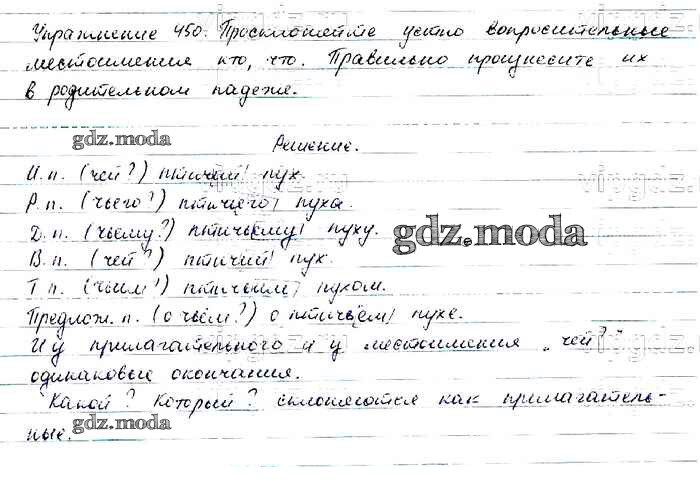 Упражнение 450. Просклоняйте устно вопросительные
местоимения кто, что. Правильно произнесите их
в родительном падеже.
gdz.moda
Решение.
И.п. (чей?) птичий пух.
Р.п. (чьего?) птичьего пуха.
Д.п. (чьему?) птичьему пуху.
gdz.moda
В.п. (чей?) птичий пух.
Т.п. (чьим?) птичьим пухом.
Предлож.п. (о чьём?) о птичьем пухе.
И у прилагательного и у местоимения „чей?“
одинаковые окончания.
Какой? Который? склоняются как прилагатель-
ные.
gdz.moda
vipgdz.ru